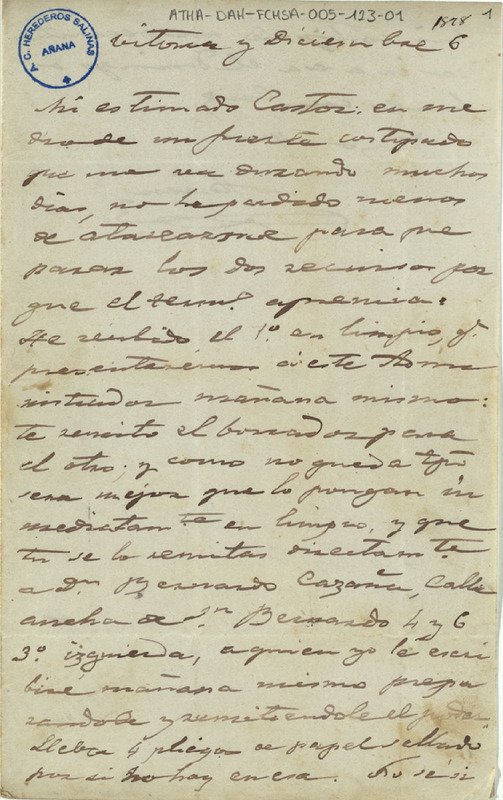 ATHA-DAH-FCHSA-005-123-01
1878
1
A. C. HEREDEROS SALINAS
AÑANA
Vitoria y Diciembre 6
Mi estimado Castor: en me
dio de un fuerte costipado
que me va durando muchos
días, no he podido menos
de atarearme para pre
parar los dos recursos por
que el term.º apremia:
He recibido el 1.º en limpio, y
presentarémos á este Admi
nistrador mañana mismo:
te remito el borrador para
el otro; y como no queda tpo
sera mejor que lo pongan in
mediatam.te en limpio, y que
tu se lo remitas directam.te
a D.n Bernardo Cazaña, Calle
ancha de S.n Bernardo 4 y 6
3.º izquierda, a quien yo le escri
biré mañana mismo prepa
randole y remitiendole el poder
Lleba 4 pliegos de papel sellado
por si no hay en esa. No se si